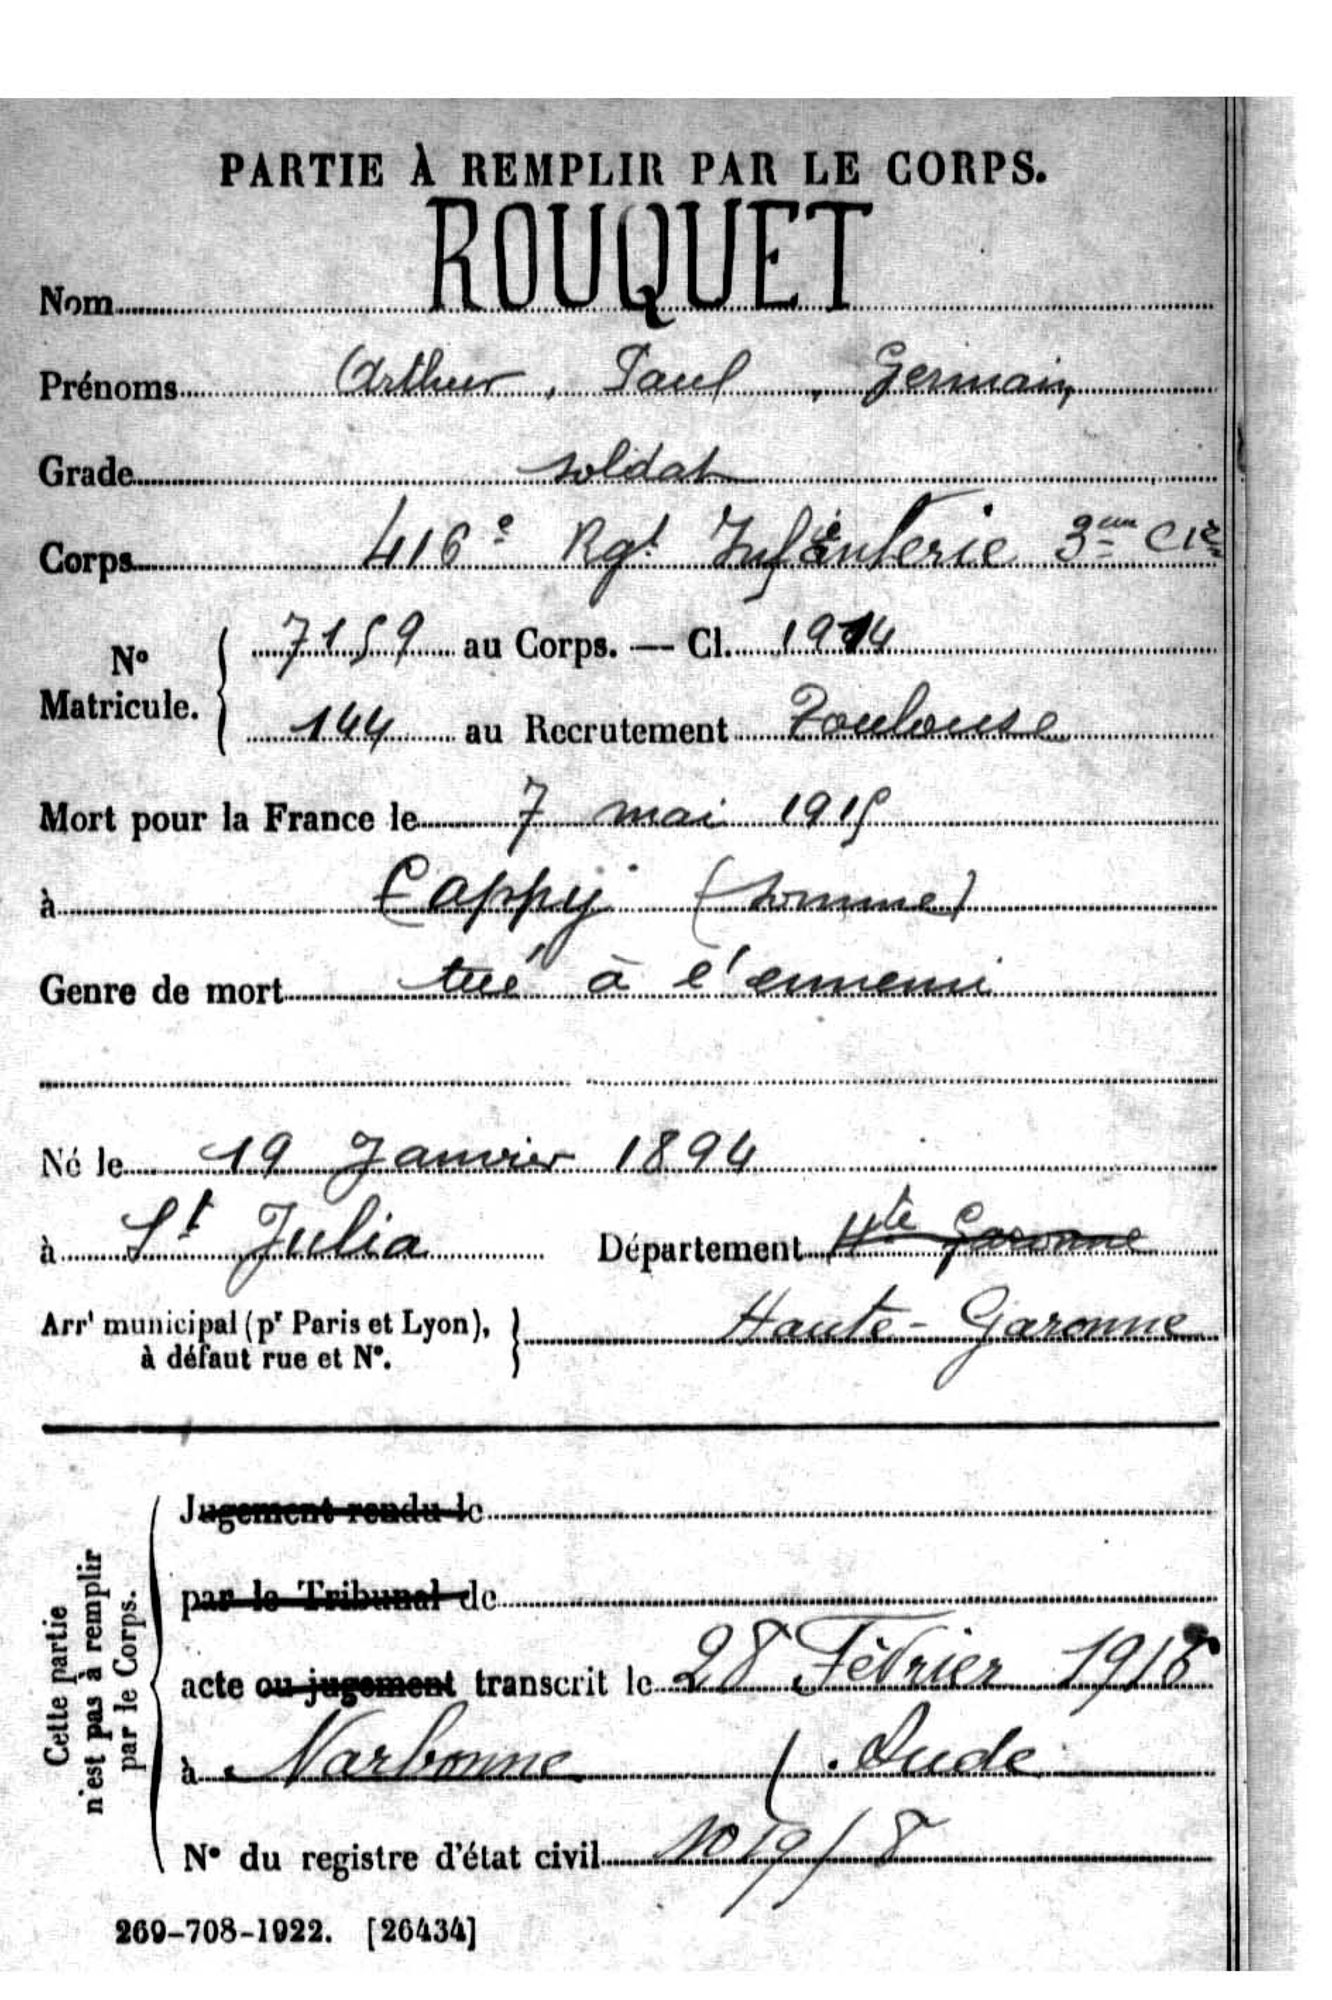 PARTIE À REMPLIR PAR LE CORPS.
Nom ROUQUET
Prénoms Arthur, Paul, Germain
Grade soldat
Corps 416e Rgt Infanterie 3eme Cie
N° Matricule. 7159 au Corps. — Cl. 1914
144 au Recrutement Toulouse
Mort pour la France le 7 mai 1915
à Cappy (Somme)
Genre de mort tué à l'ennemi
Né le 19 Janvier 1894
à St Julia Département Hte Garonne
Arrt municipal (pr Paris et Lyon), à défaut rue et N°. Haute-Garonne
Cette partie n'est pas à remplir par le Corps.
Jugement rendu le
par le Tribunal de
acte ou jugement transcrit le 28 Février
à Narbonne ( Aude
N° du registre d'état civil
269-708-1922. [26434]